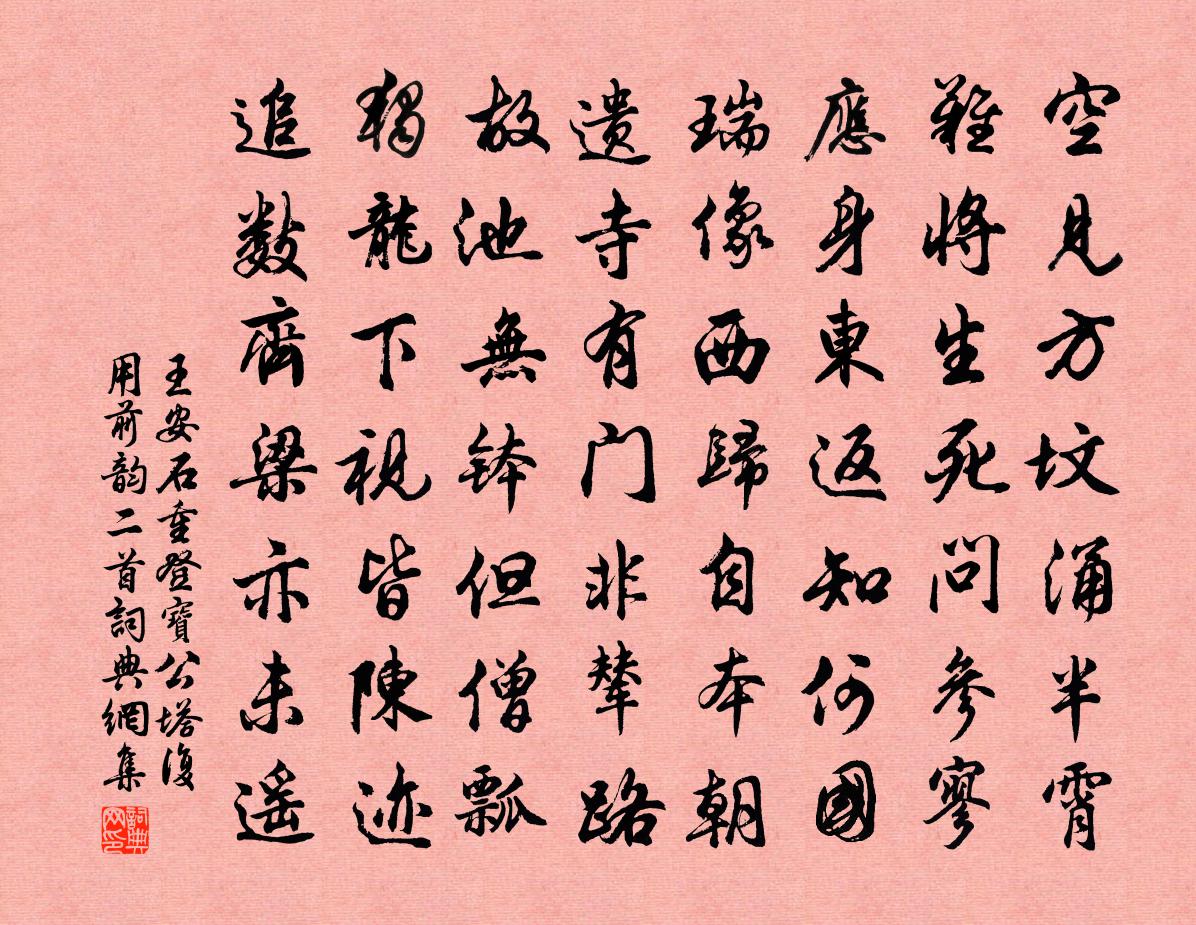 空見方坟涌半霄
難將生死問參寥
應身東返知何國
瑞像西歸自本朝
遺寺有门非輦路
故池無鉢但僧瓢
獨龍下視皆陳迹
追數齊梁亦未遥
王安石重登寶公塔復
用前韵二首詞典網集
詞典网印